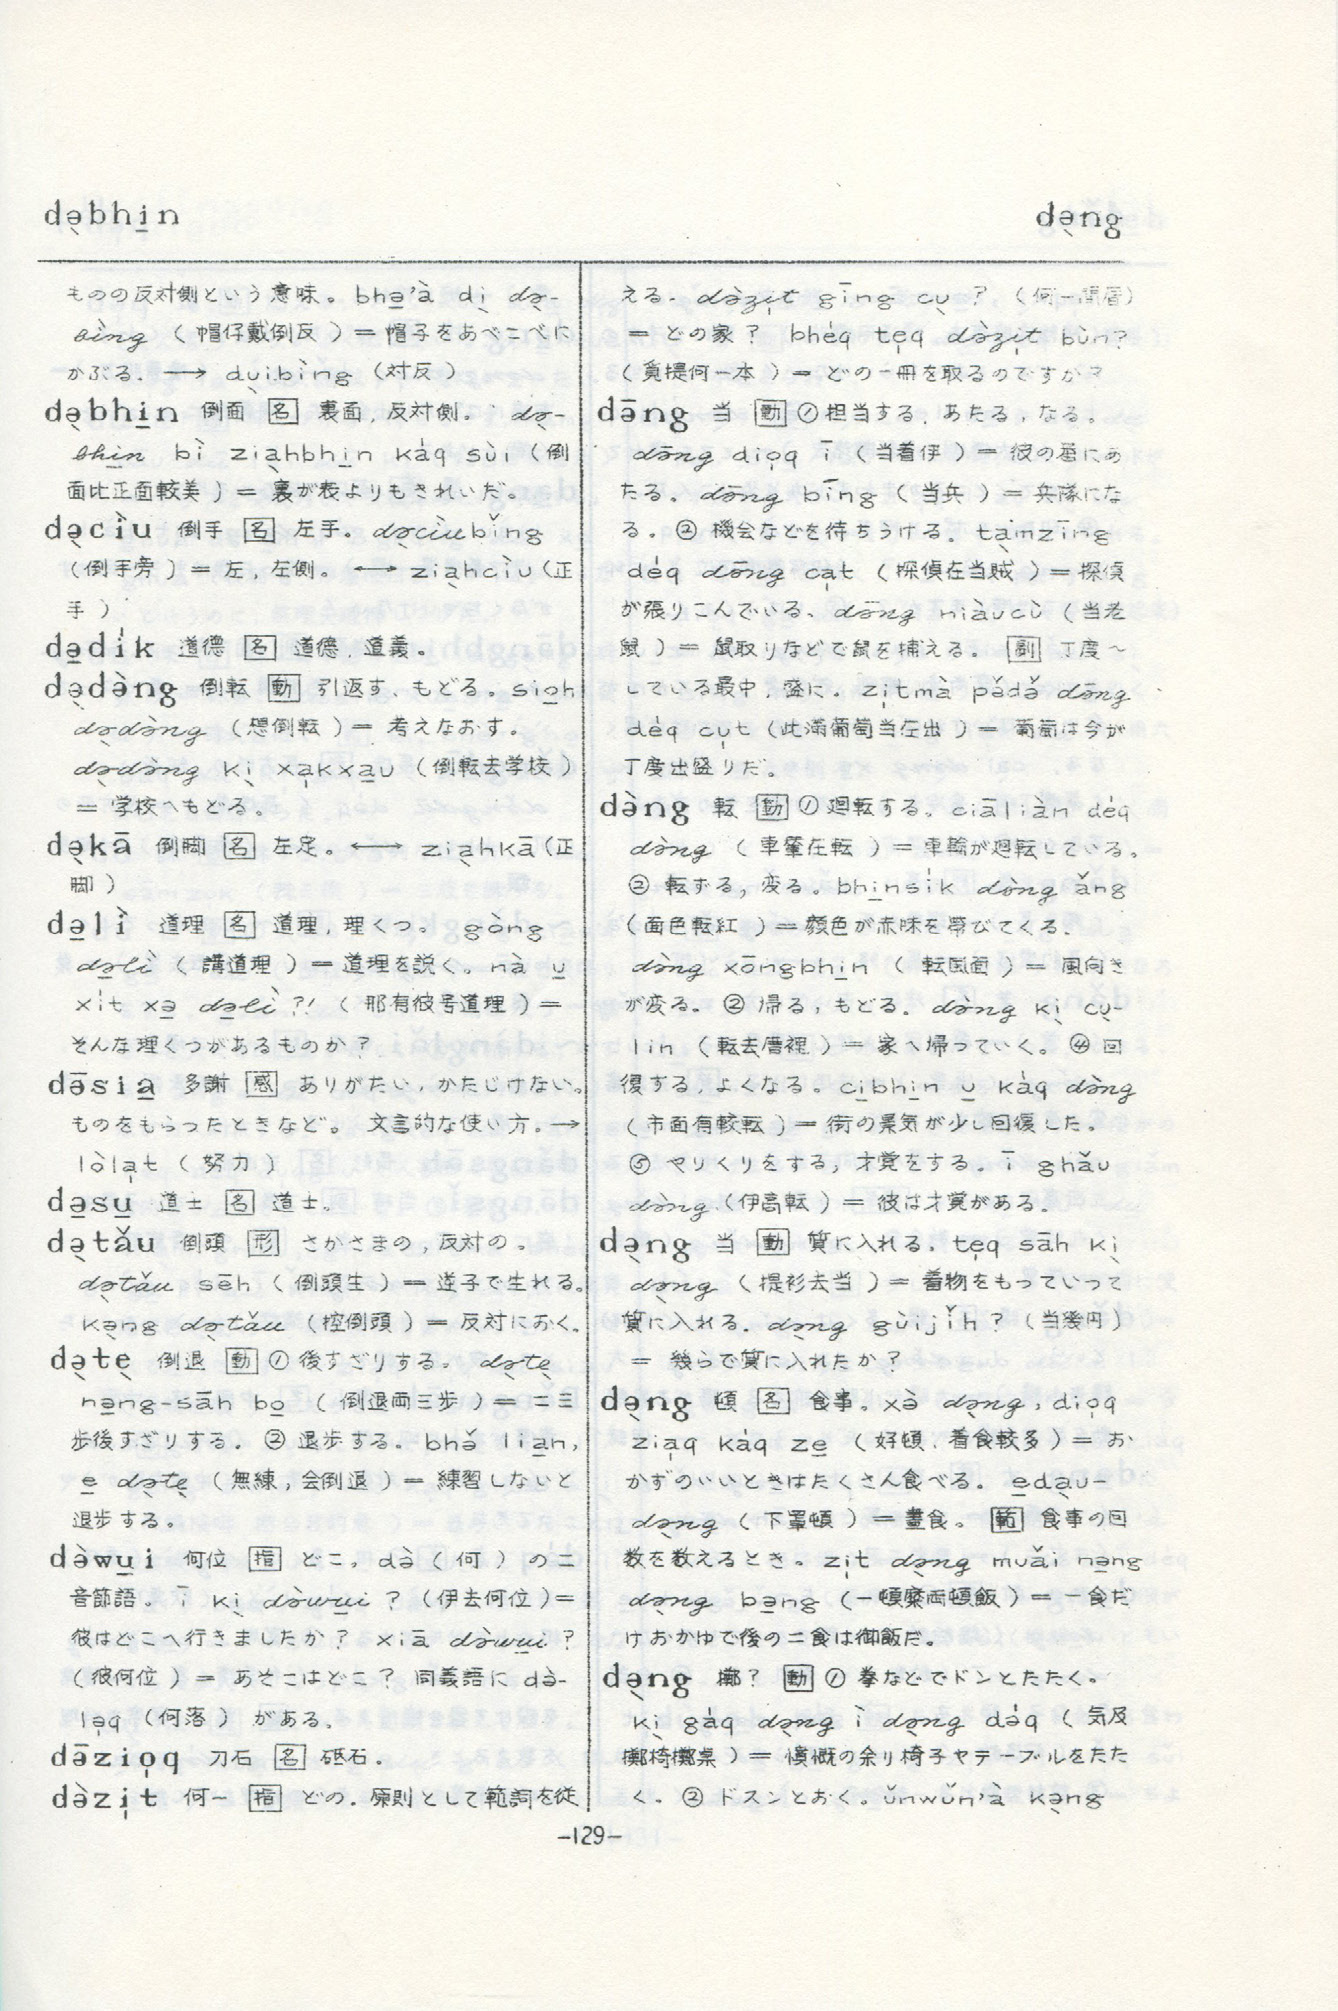 də̖bhi̠n
də̖ng
ものの反対側という意味。bhə̠'à di̖ də̖-
bìng (帽仔戴倒反)＝帽子をあべこべに
かぶる. ⟶ du̖ibìng (対反)
də̖bhi̠n 倒面 [名] 裏面,反対側。də̖-
bhi̠n bì zia̖hbhi̠n káq sùi (倒
面比正面較美)＝裏が表よりもきれいだ。
də̖ciù 倒手 [名] 左手。də̖ciùbǐng
(倒手旁)＝左,左側。⟷ zia̖hciù (正
手)
də̠dík 道德 [名] 道徳,道義。
də̖də̀ng 倒転 [動] 引返す,もどる。sio̠h
də̖də̀ng (想倒転)＝考えなおす。
də̖də̀ng ki̖ xa̍kxa̠u (倒転去学校)
＝学校へもどる。
də̖kā 倒脚 [名] 左足。⟷ zia̖hkā (正
脚)
də̠lì 道理 [名] 道理,理くつ。gòng
də̠lì (講道理)＝道理を説く。nà u̠
xít xə̠ də̠lì ?! (那有彼号道理)＝
そんな理くつがあるものか?
də̄sia̠ 多謝 [感] ありがたい,かたじけない。
ものをもらったときなど。文言的な使い方。→
lòla̍t (努力)
də̠su̠ 道士 [名] 道士。
də̖tǎu 倒頭 [形] さかさまの,反対の。
də̖tǎu sēh (倒頭生)＝逆子で生れる。
kə̖ng də̖tǎu (控倒頭)＝反対におく。
də̖te̖ 倒退 [動] ① 後すざりする。də̖te̖
nə̠ng-sāh bo̠ (倒退両三步)＝二三
歩後すざりする。② 退歩する。bhə̌ lia̠h,
e̠ də̖te̖ (無練,会倒退)＝練習しないと
退歩する。
də̀wu̠i 何位 [指] どこ,də̀ (何)の二
音節語。ī ki̖ də̀wu̠i ? (伊去何位)＝
彼はどこへ行きましたか? xiā də̀wu̠i ?
(彼何位)＝あそこはどこ? 同義語に də̀-
lə̍q (何落)がある。
də̄zio̍q 刀石 [名] 砥石.
də̀zi̍t 何一 [指] どの.原則として範詞を従
える. də̀zi̍t gīng cu̖ ? (何一間厝)
＝どの家? bhéq te̍q də̀zi̍t bùn?
(覓提何一本)＝どの一冊を取るのですか?
də̄ng 当 [動] ① 担当する,あたる,なる。
də̄ng dio̍q ī (当着伊)＝彼の番にあ
たる。də̄ng bīng (当兵)＝兵隊にな
る。② 機会などを待ちうける. ta̖mzīng
déq də̄ng ca̍t (探偵在当賊)＝探偵
が張りこんでいる、də̄ng niàucù (当老
鼠)＝鼠取りなどで鼠を捕える。[副] 丁度〜
している最中,盛に。zi̍tmà pə̌də̌ də̄ng
déq cu̍t (此満葡萄当在出)＝葡萄は今が
丁度出盛りだ。
də̀ng 転 [動] ① 廻転する. ciāliàn déq
də̀ng (車輦在転)＝車輪が廻転している。
② 転ずる,変る。bhi̠nsík də̀ng ǎng
(面色転紅)＝顔色が赤味を帯びてくる.
də̀ng xōngbhi̠n (転風面)＝風向き
が変る。② 帰る,もどる. də̀ng ki̖ cu̖-
lin (転去厝裡)＝家へ帰っていく。④ 回
復する,よくなる。cibhi̠n u̠ káq də̀ng
(市面有較転)＝街の景気が少し回復した。
⑤ やりくりをする,才覚をする。ī ghǎu
də̀ng. (伊高転)＝彼は才覚がある.
də̖ng 当 [動] 質に入れる. te̍q sāh ki̖
də̖ng (提衫去当)＝着物をもっていって
質に入れる. də̖ng gùijǐh ? (当幾円)
＝幾らで質に入れたか?
də̖ng 頓 [名] 食事。xə̀ də̖ng, dio̍q
zia̍q káq ze̠ (好頓,着食較多)＝お
かずのいいときはたくさん食べる。e̠da̖u-
də̖ng (下罩頓)＝晝食。[範] 食事の回
数を数えるとき。zi̍t də̖ng muǎi nə̠ng
də̖ng bə̠ng (一頓糜両頓飯)＝一食だ
けおかゆで後の二食は御飯だ。
də̖ng 擲? [動] ① 拳などでドンとたたく。
ki̖ gáq də̖ng ì də̖ng də́q (気及
擲椅擲桌)＝憤慨の余り椅子やテーブルをたた
く。② ドスンとおく。ǔnwǔn'à kə̖ng
-129-